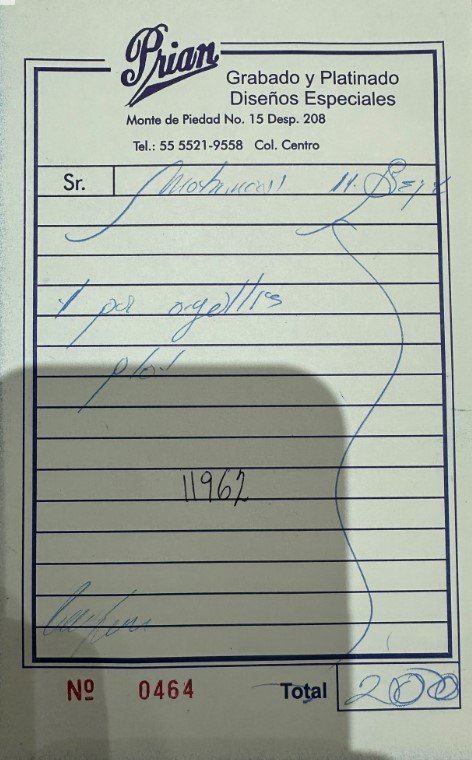 Prian
Grabado y Platinado
Diseños Especiales
Monte de Piedad No. 15 Desp. 208
Tel.: 55 5521-9558 Col. Centro
Sr.
1 par
11962
Nº 0464 Total 2000